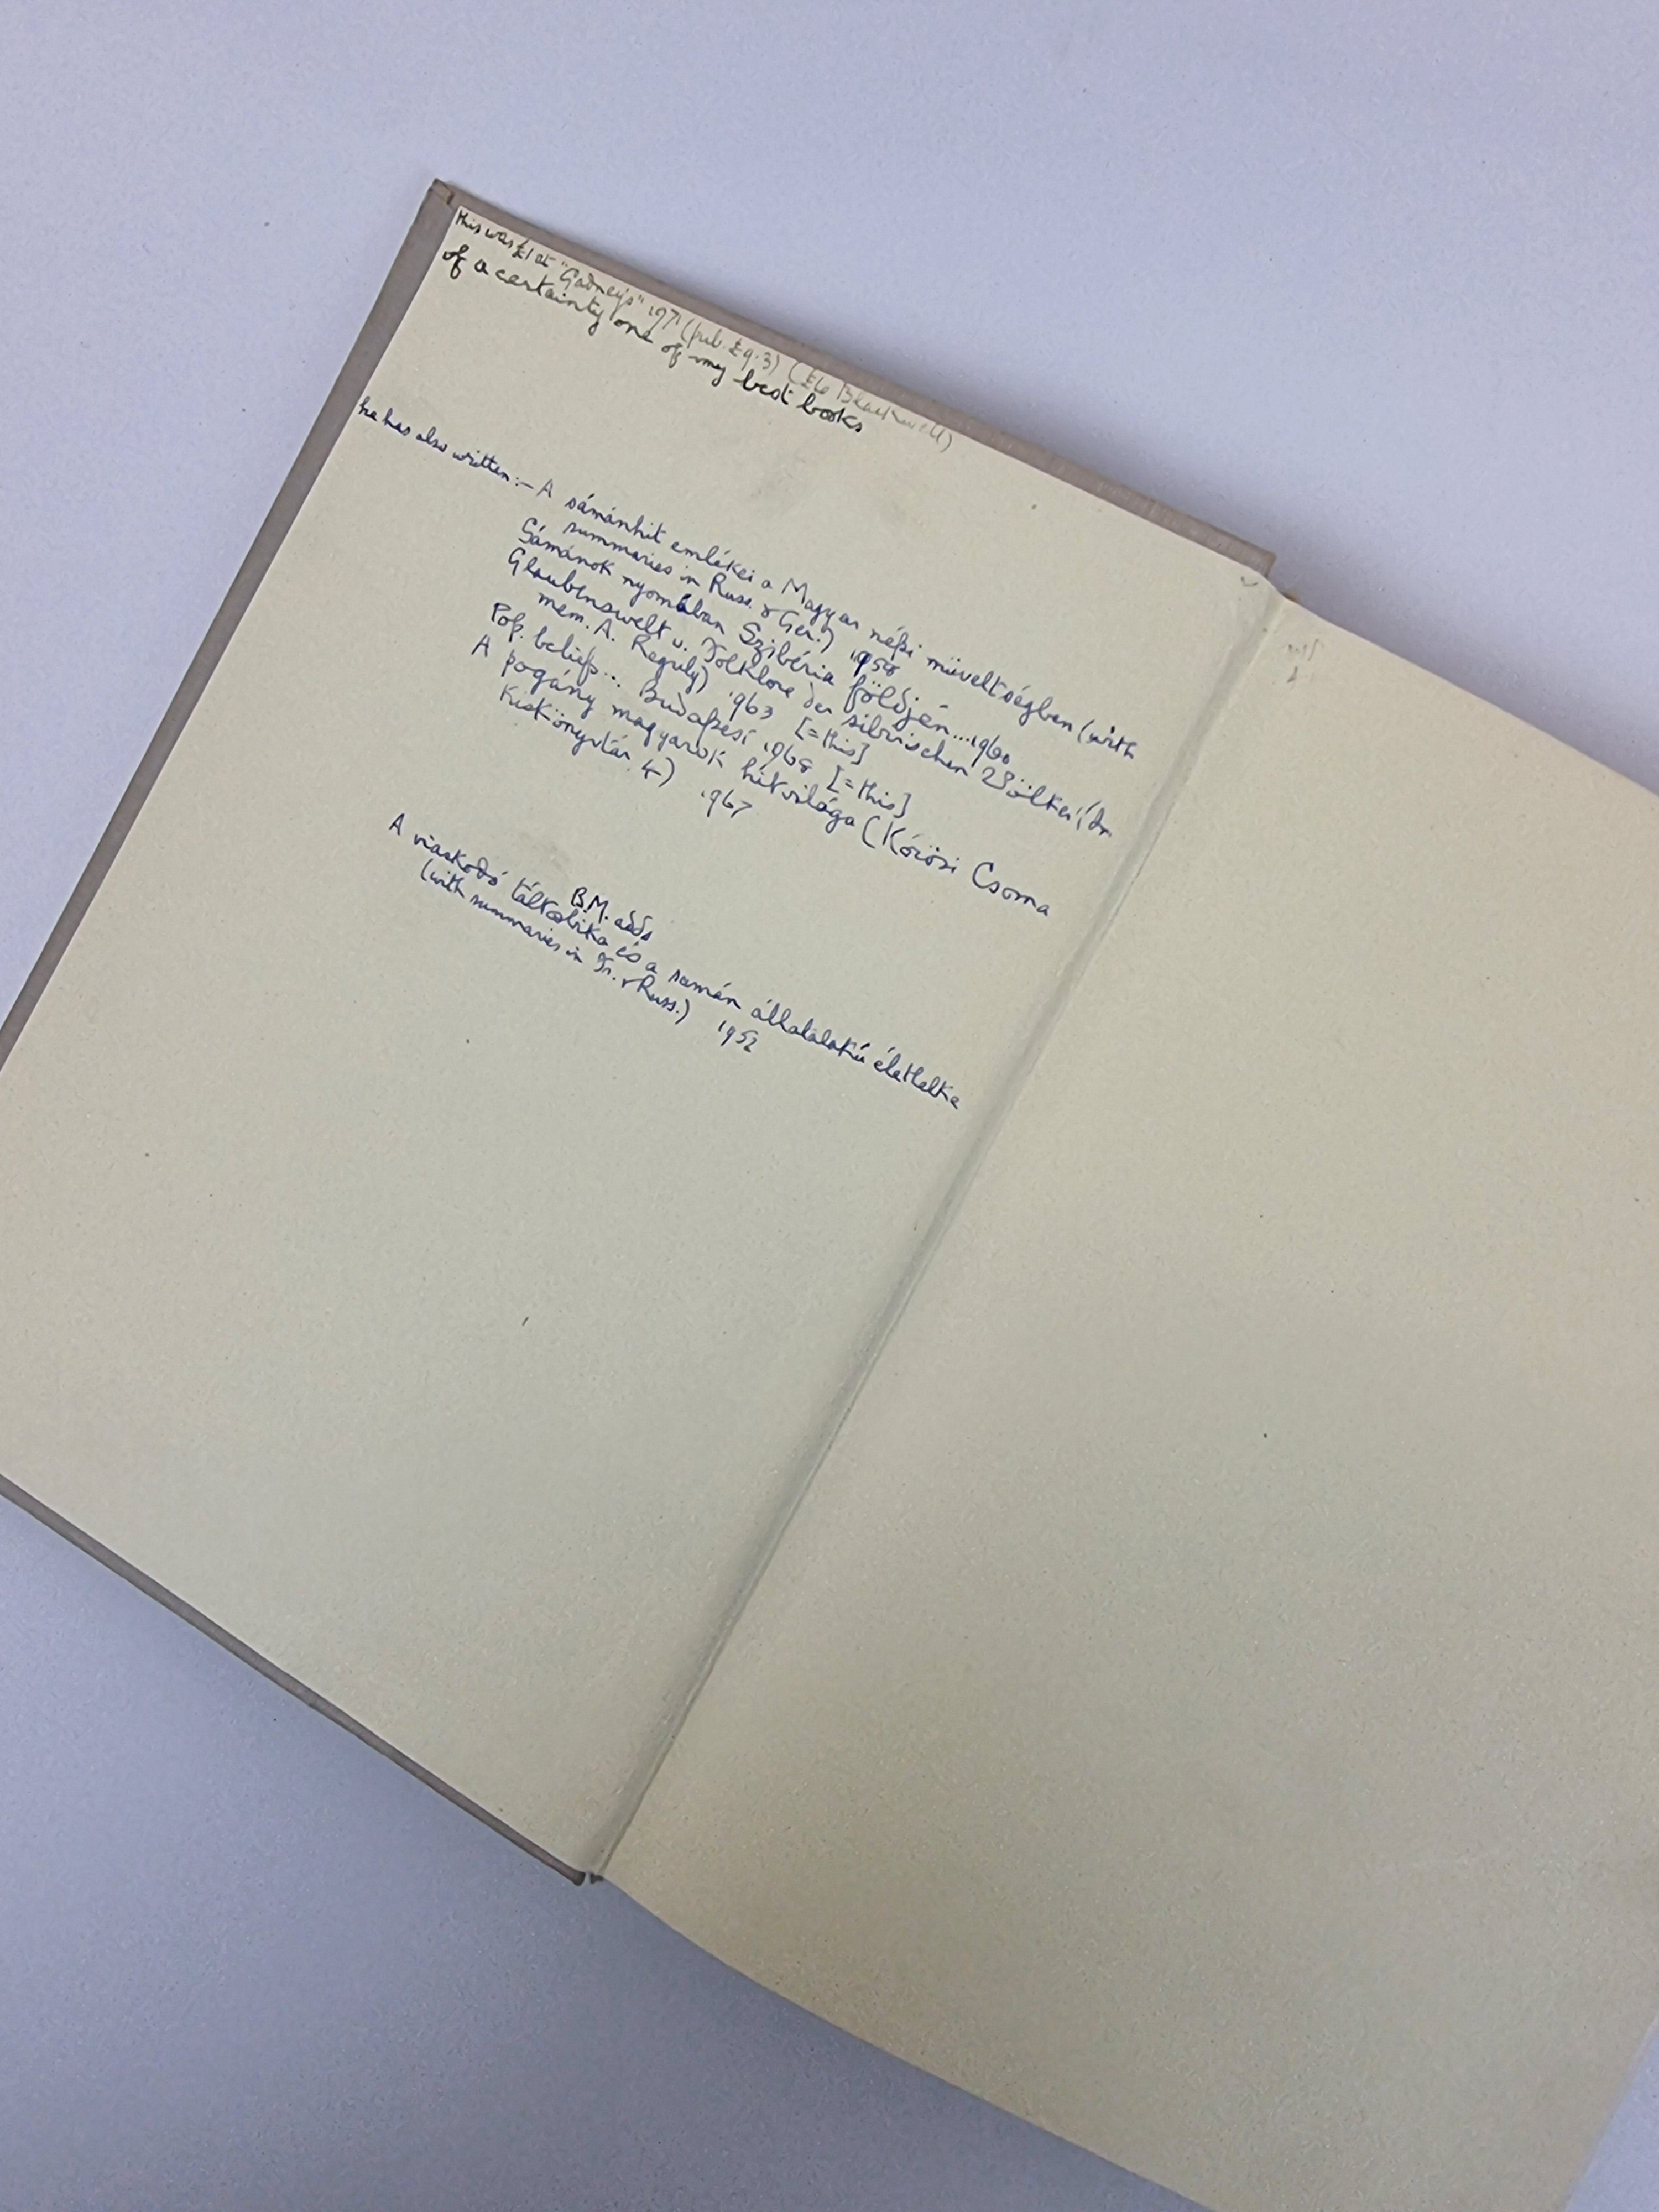 this was £1 at "Gadney's" 1971 (pub. £9.3) (£6 Blackwell)
of a certainty one of my best books
he has also written:— A sámánhit emlékei a Magyar népi műveltségben (with
summaries in Russ. & Ger.) 1958
Sámánok nyomában Szibéria földjén...1960
Glaubenswelt u. Folklore der sibirischen Völker (In
mem. A. Reguly) 1963 [=this]
Pop. beliefs... Budapest 1968 [=this]
A pogány magyarok hitvilága (Kőrösi Csoma
Kiskönyvtár 4) 1967
B.M. adds
A viaskodó táltosbika és a samán állatalakú életlelke
(with summaries in Fr. & Russ.) 1952